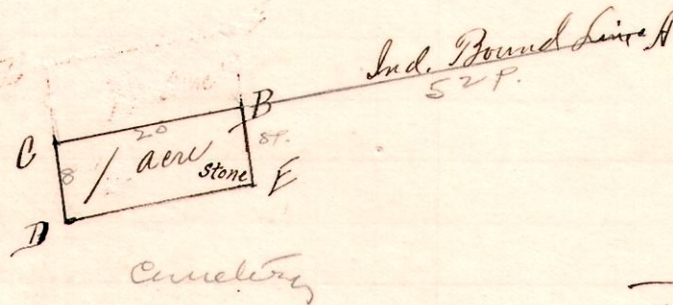 Ind. Bound Line A
52 P.
B
20
8P.
C
8
1 acre
Stone
E
D
Cemetery